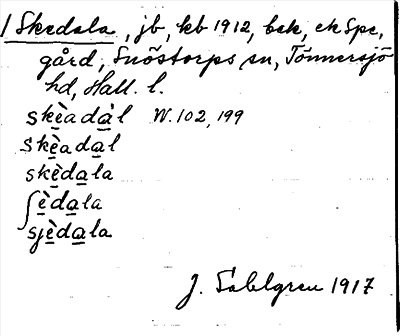 1 Skedala, jb, kb 1912, bek, ek Spe,
gård, Snöstorps sn, Tönnersjö
hd, Hall. l.
skèadàl W. 102, 199
skèadal
skèdala
ʃèdala
sjèdala
J. Sahlgren 1917